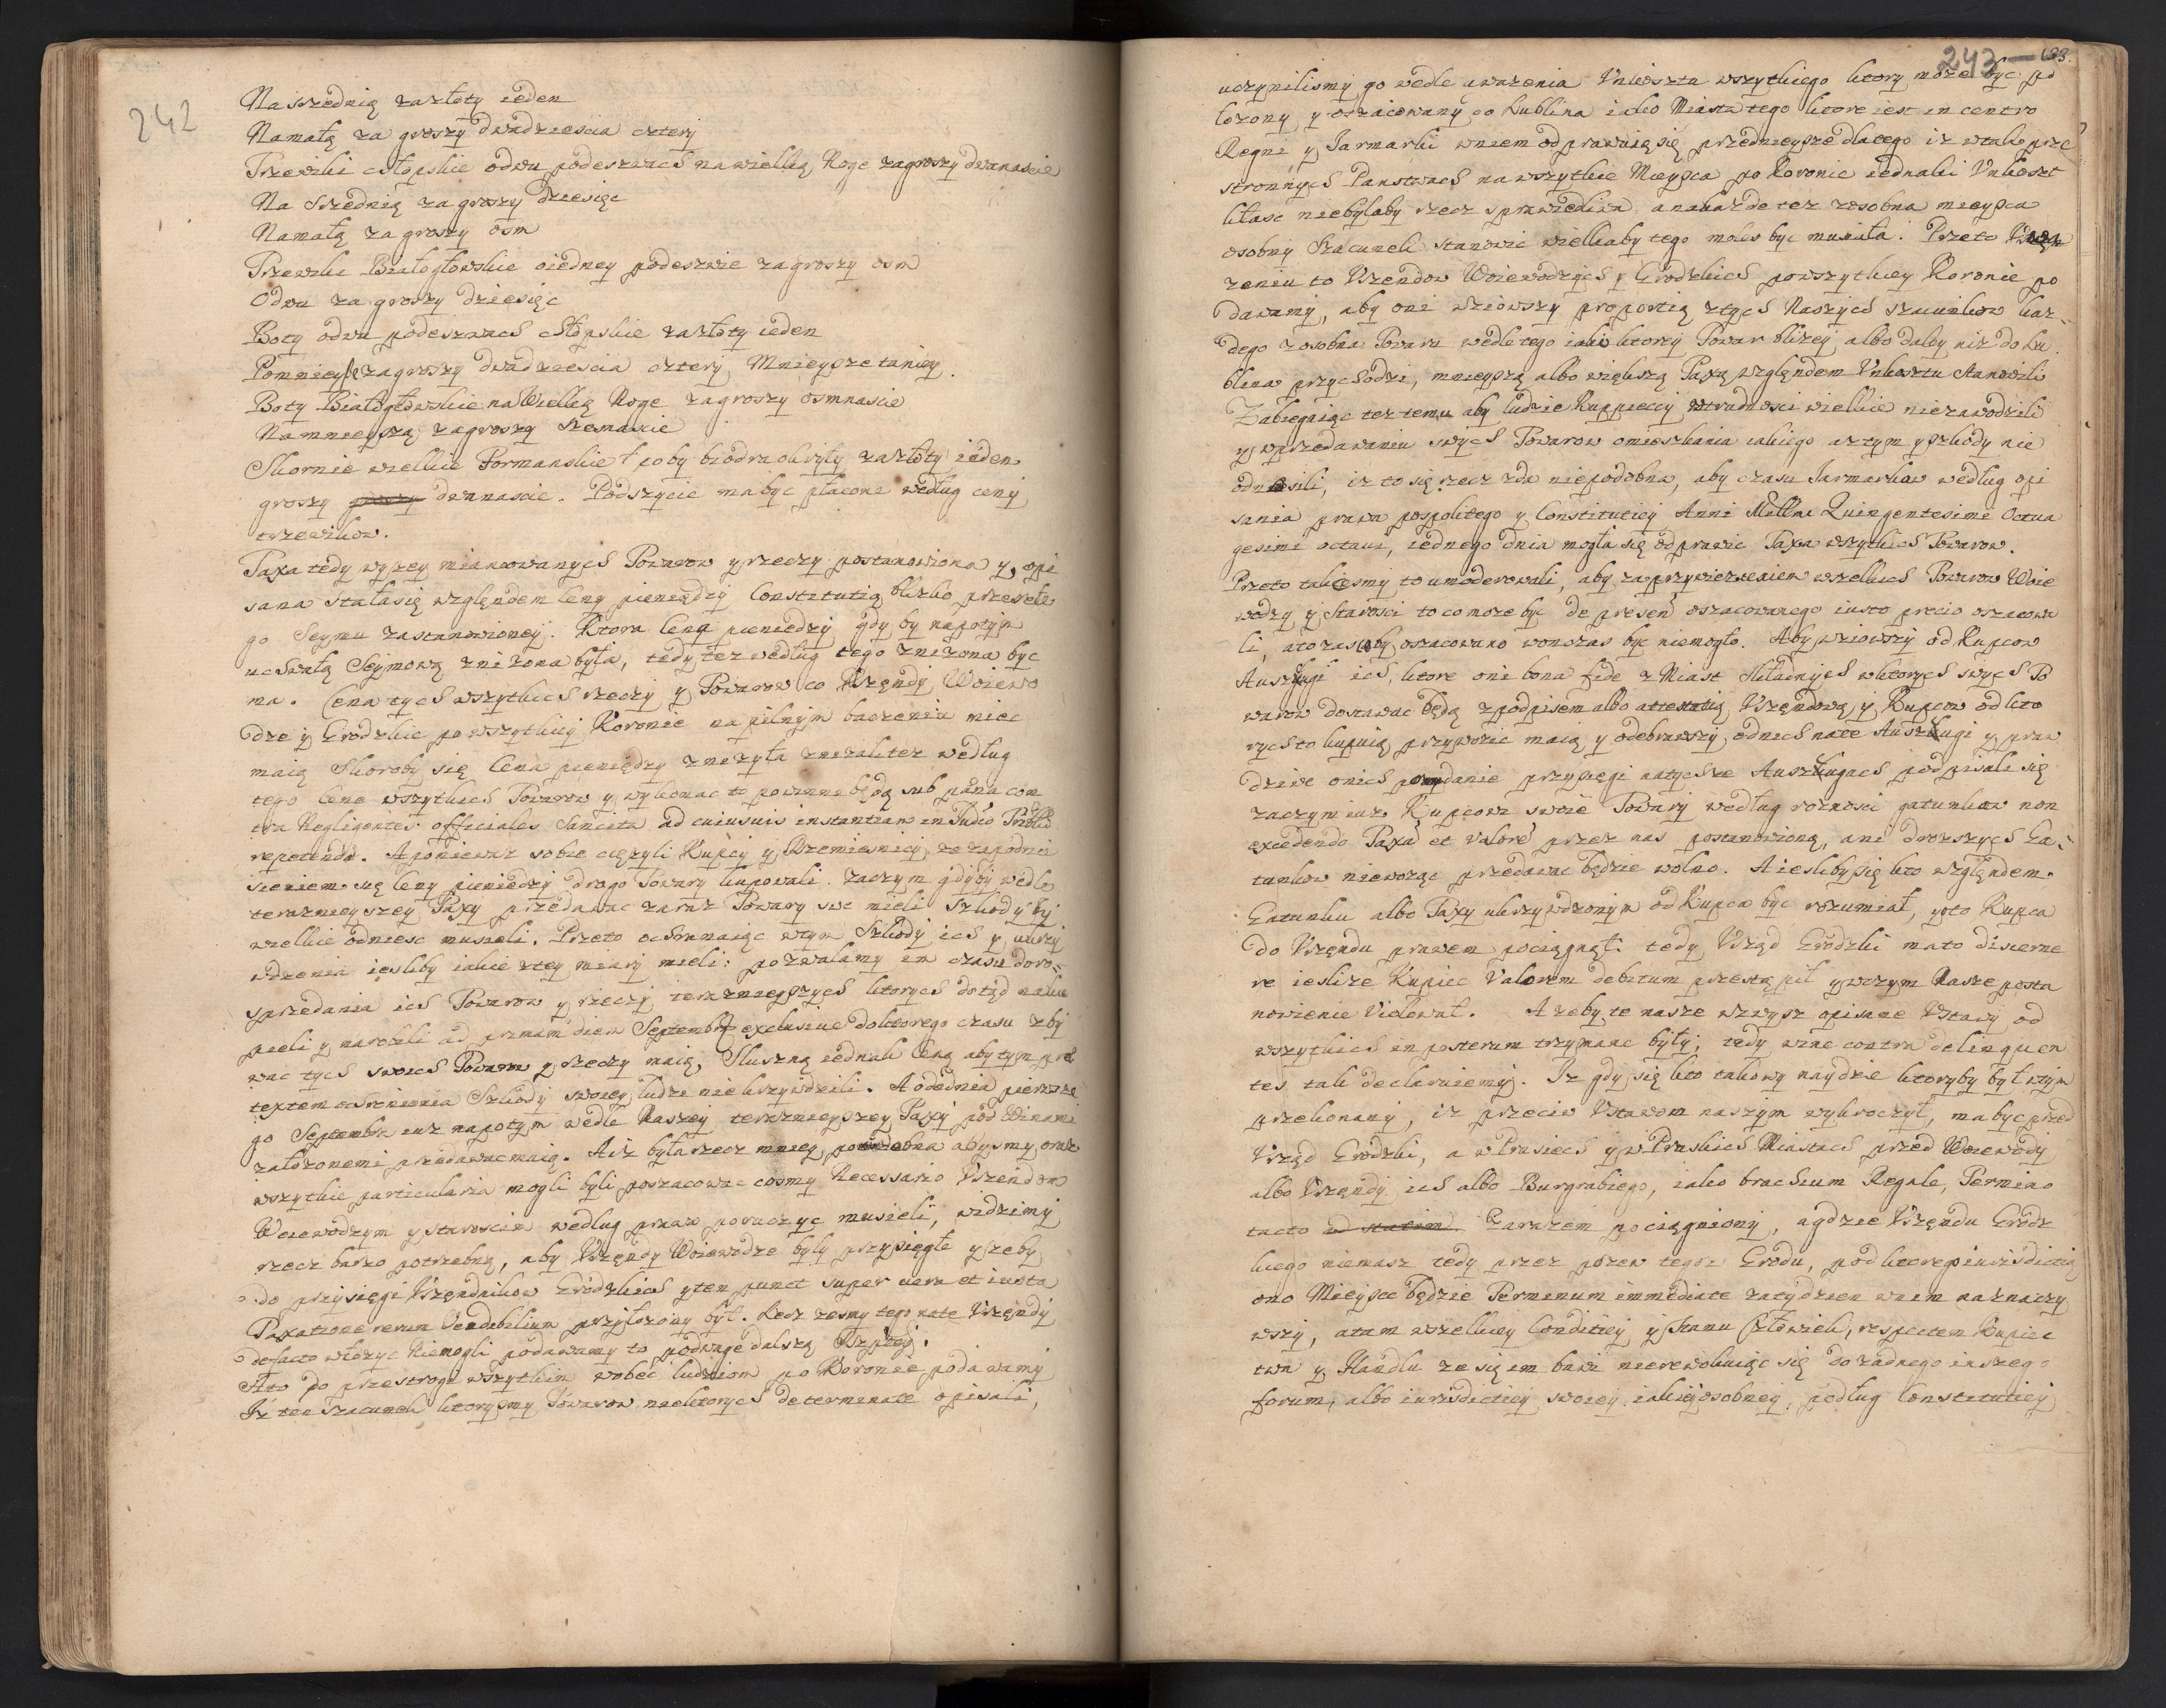 242
Na srzednią za złoty ieden
Na małą za groszy dwadziescia cztery
Trzewiki chłopskie o dwu podeszwach na wielką Nogę za groszy dwanascie
Na srzednią za groszy dziesięc
Na małą za groszy osm
Trzewiki Białogłowskie o iedney podeszwie za groszy osm
O dwu za groszy dziesięc
Boty o dwu podeszwach chłopskie za złoty ieden
Pomnieysze za groszy dwadziescia cztery, Mnieysze taniey.
Boty Białogłowskie na Wielką Nogę za groszy osmnascie
Na mnieyszą za groszy szesnascie
Skornie wielkie Formanskie coby biodra okryły za złoty ieden
groszy groszy dwanascie. Podszycie ma byc płacone według ceny
trzewikow.
Taxa tedy wyzey mianowanych Towarow y rzeczy postanowiona y opi
sana stała się względem Ceny pieniędzy Constitutią blizko przeszłe
go Seymu zastanowioney. Ktora Cena pieniędzy gdy by napotym
uchwałą Seymową znizona była, tedy tez według tego znizona byc
ma. Cena tych wszytkich rzeczy y Towarow co Urzędy Woiewo
dze y Grodzkie po wszytkiey Koronie na pilnym baczeniu miec
maią Skoroby się Cena pieniędzy znizyła znizali tez według
tego Cenę wszytkich Towarow y wykonac to powinni będą sub pæna con
tra Negligentes officiales Sancita ad cuiusuis instantiam in Judio Tribli
repetenda. A poniewaz sobie cięzyli Kupcy y Rzemiesnicy, ze za podnie
sieniem się Ceny pieniędzy drogo Towary kupowali. Zaczym gdyby wedle
teraznieyszey Taxy przedawac zaraz Towary swe mieli Szkody by
wielkie odniesc musieli. Przeto ochraniaiąc w tym Szkody ich y ukrzy
wdzenia iesliby iakie z tey miary mieli: pozwalamy im czasu do ro=
sprzedania ich Towarow y rzeczy teraznieyszych ktorych dotąd naku
pieli y narobili ad primam diem Septembris exclusiue do ktorego czasu zby
wac tych swoich Towarow y rzeczy maią, Słuszną iednak Ceną aby tym prae
textem ochronienia Szkody swoiey ludzi nie krzywdzili. A od dnia pierwsze
go Septembra iuz napotym wedle Naszey teraznieyszey Taxy pod Winami
załozonemi przedawac maią. A iz była rzecz mniey podobna abysmy oraz
wszytkie particularia mogli byli poszacowac cosmy Necessario Urzendom
Woiewodzym y Staroscim według praw poruczyc musieli, widzimy
rzecz barzo potrzebną, aby Urzędy Woiewodze były przysięgłe y zeby
do przysięgi Urzędnikow Grodzkich y ten punct super uera et iusta
Taxatione rerum Vendibilium przyłozony był. Lecz zesmy tego na te Urzędy
de facto włozyc Niemogli podawamy to pod uwagę dalszą Rzptey.
A to do przestrogi wszytkim wobec ludziom po Koronie podawamy
Iz ten Szacunek ktorysmy Towarow niektorych determinate opisali,
243 — 133.
uczynilismy go wedle uwazenia Unkosztu wszytkiego ktory moze byc po
łozony y oszacowany do Lublina iako Miasta tego ktore iest in centro
Regni, y Jarmarki w niem odprawuią się przednieysze dlatego iz w tak prze
stronnych Panstwach na wszytkie Mieysca po Koronie iednaki Unkoszt
kłasc niebyłaby rzecz sprawiedliwa a na kazde tez zosobna mieysca
osobny Szacunek stanowic wielkaby tego moles byc musiała. Przeto Uwa
zeniu to Urzendow Woiewodzych y Grodzkich po wszytkiey Koronie po
dawamy, aby oni wziowszy proportią z tych Naszych szacunkow kaz=
dego zosobna Towaru wedle tego iako ktory Towar blizey albo daley niz do Lu
blina przychodzi, mnieyszą albo większą Taxą względem Unkosztu stanowili
Zabiegaiąc tez temu aby ludzie Kupieccy w trudnosci wielkie niezawodzili
y w przedawaniu swych Towarow omieszkania iakiego a z tym y szkody nie
odnosili, iz to się rzecz zda niepodobna, aby czasu Jarmarkow według opi
sania prawa pospolitego y Constitutiey Anni Millmi Quingentesimi Octua
gesimi octaui, iednego dnia mogła się odprawic Taxa wszytkich Towarow.
Przeto takesmy to umoderowali, aby za przywiezieniem wszelkich Towarow Woie
wodzy y Starosci to co moze byc de presenti oszacowanego iusto precio oszacowa
li, a to zas coby oszacowano wonczas byc niemogło. Aby wziowszy od Kupcow
Auszugi ich, ktore oni bona fide z Miast Składnych w ktorych swych To
warow dostawac będą z podpisem albo attestatią Urzędową y Kupcow od kto
rych to kupuią przywozic maią y odebrawszy od nich na te Auszugi y praw
dziwe o nich podanie przysięgi na tychze Auszugach podpisali się
zaczym iuz Kupcowi swoie Towary według roznosci gatunkow non
excedendo Taxã et valorẽ przez nas postanowioną, ani drozszych Ga=
tunkow niewoząc przedawac będzie wolno. A iesliby się kto względem
Gatunku albo Taxy ukrzywdzonym od Kupca byc rozumiał, y o to Kupca
do Urzędu prawem pociągnął: tedy Urząd Grodzki ma to discerne
re ieslize Kupiec Valorem debitum przestąpił y w czym Nasze posta
nowienie Violował. A zeby te nasze wzwysz opisane Ustawy od
wszytkich in posterum trzymane były; tedy winę contra delinquen
tes tak declaruiemy. Iz gdy się kto takowy naydzie ktoryby był w tym
przekonany, iz przeciw Ustawom naszym wykroczył, ma byc przed
Urząd Grodzki, a w Prusiech y w Pruskich Miastach przed Woiewody
albo Urzędy ich albo Burgrabiego, iako brachium Regale, Termino
tacto Zarazem pociągniony, a gdzie Urzędu Grodz
kiego niemasz tedy przez pozew tegoz Grodu, pod ktorego iurisdictią
ono Mieysce będzie Terminum immediate za tydzien w niem naznaczy
wszy, a tam wszelkiey Conditiey y Stanu Człowiek, respectem Kupiec
twa y Handlu ze się im bawi nierewokuiąc się do zadnego inszego
forum, albo iurisdictiey swoiey iakiey osobney, podług Constitutiey